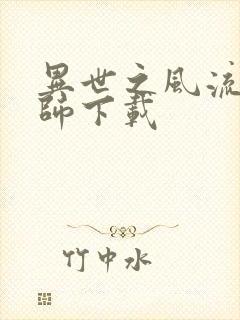 異世之風流
師下載
竹中水